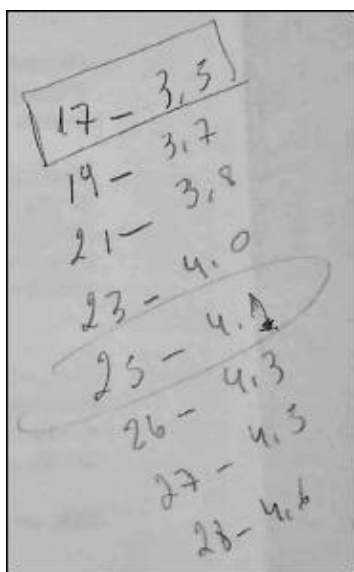 17 - 3,5
19 - 3,7
21 - 3,8
23 - 4.0
25 - 4.2
26 - 4.3
27 - 4.5
28 - 4.6